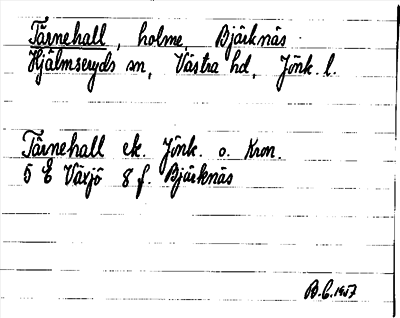 Tärnehall, holme, Bjärknäs
Hjälmseryds sn, Västra hd, Jönk. l.
Tärnehall ek. Jönk. o. Kron.
5 E Växjö 8 f. Bjärknäs
B.C. 1957